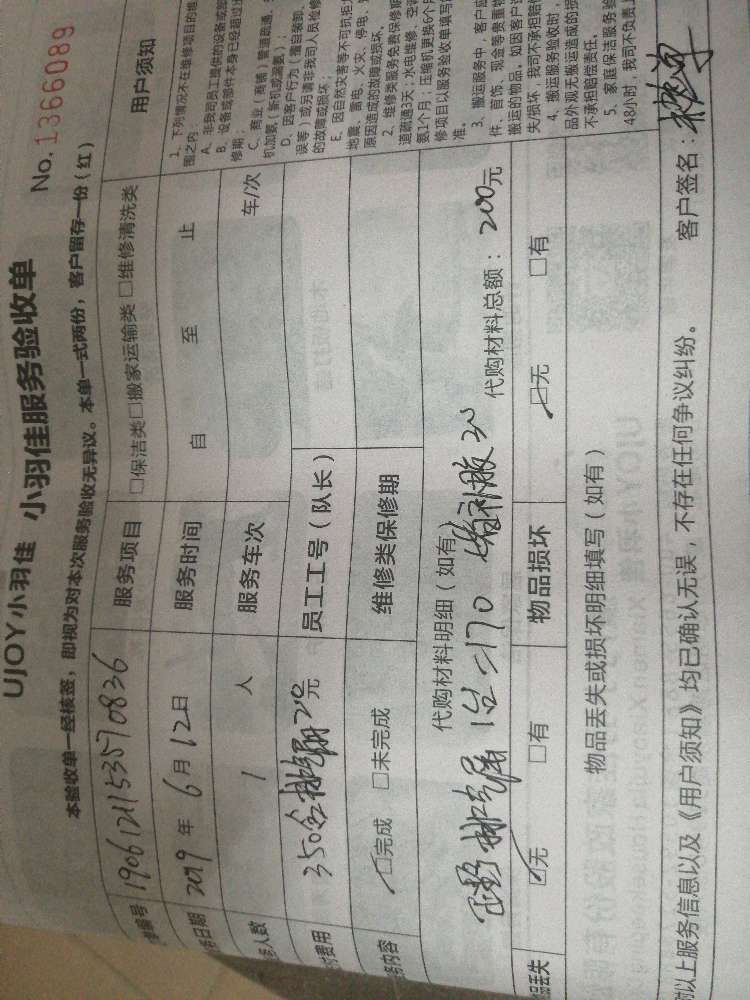 UJOY小羽佳 小羽佳服务验收单
No.1366089
本验收单一经核签，即视为对本次服务验收无异议。本单一式两份，客户留存一份（红）
编号 1906121153570836
服务项目 □保洁类□搬家运输类 □维修清洗类
务日期 2019 年 6 月 12 日
服务时间 自 至 止
务人数 1 人
服务车次 车/次
付费用 350含排气扇200元
员工工号（队长）
务内容 ☑完成 □未完成
维修类保修期
代购材料明细（如有） 代购材料总额：200元
排气扇 1台=170
30
品丢失 ☑无 □有
物品损坏 ☑无 □有
物品丢失或损坏明细填写（如有）
对以上服务信息以及《用户须知》均已确认无误，不存在任何争议纠纷。 客户签名：
用户须知
1、下列情况不在维修项目的维
围之内：
A、非我司员工提供的设备或部
B、设备或部件本身已经超过出
修期；
C、商业（商铺）管道疏通、
机加氨（新机或漏氨）；
D、因客户行为（擅自装卸、
误等）或另请非我司人员检修
的故障或损坏；
E、因自然灾害等不可抗拒
地震、雷电、火灾、停电、
原因造成的故障或损坏。
2、维修类服务免费保修期
道疏通3天；水电维修、空调
氨1个月；压缩机更换6个月
修项目以服务验收单填写
准。
3、搬运服务中，客户应
件、首饰、现金等贵重物
搬运的物品。如因客户
失/损坏，我司不承担赔
4、搬运服务验收时，
品外观无搬运造成的损
不承担赔偿责任。
5、家庭保洁服务验
48小时，我司不负责